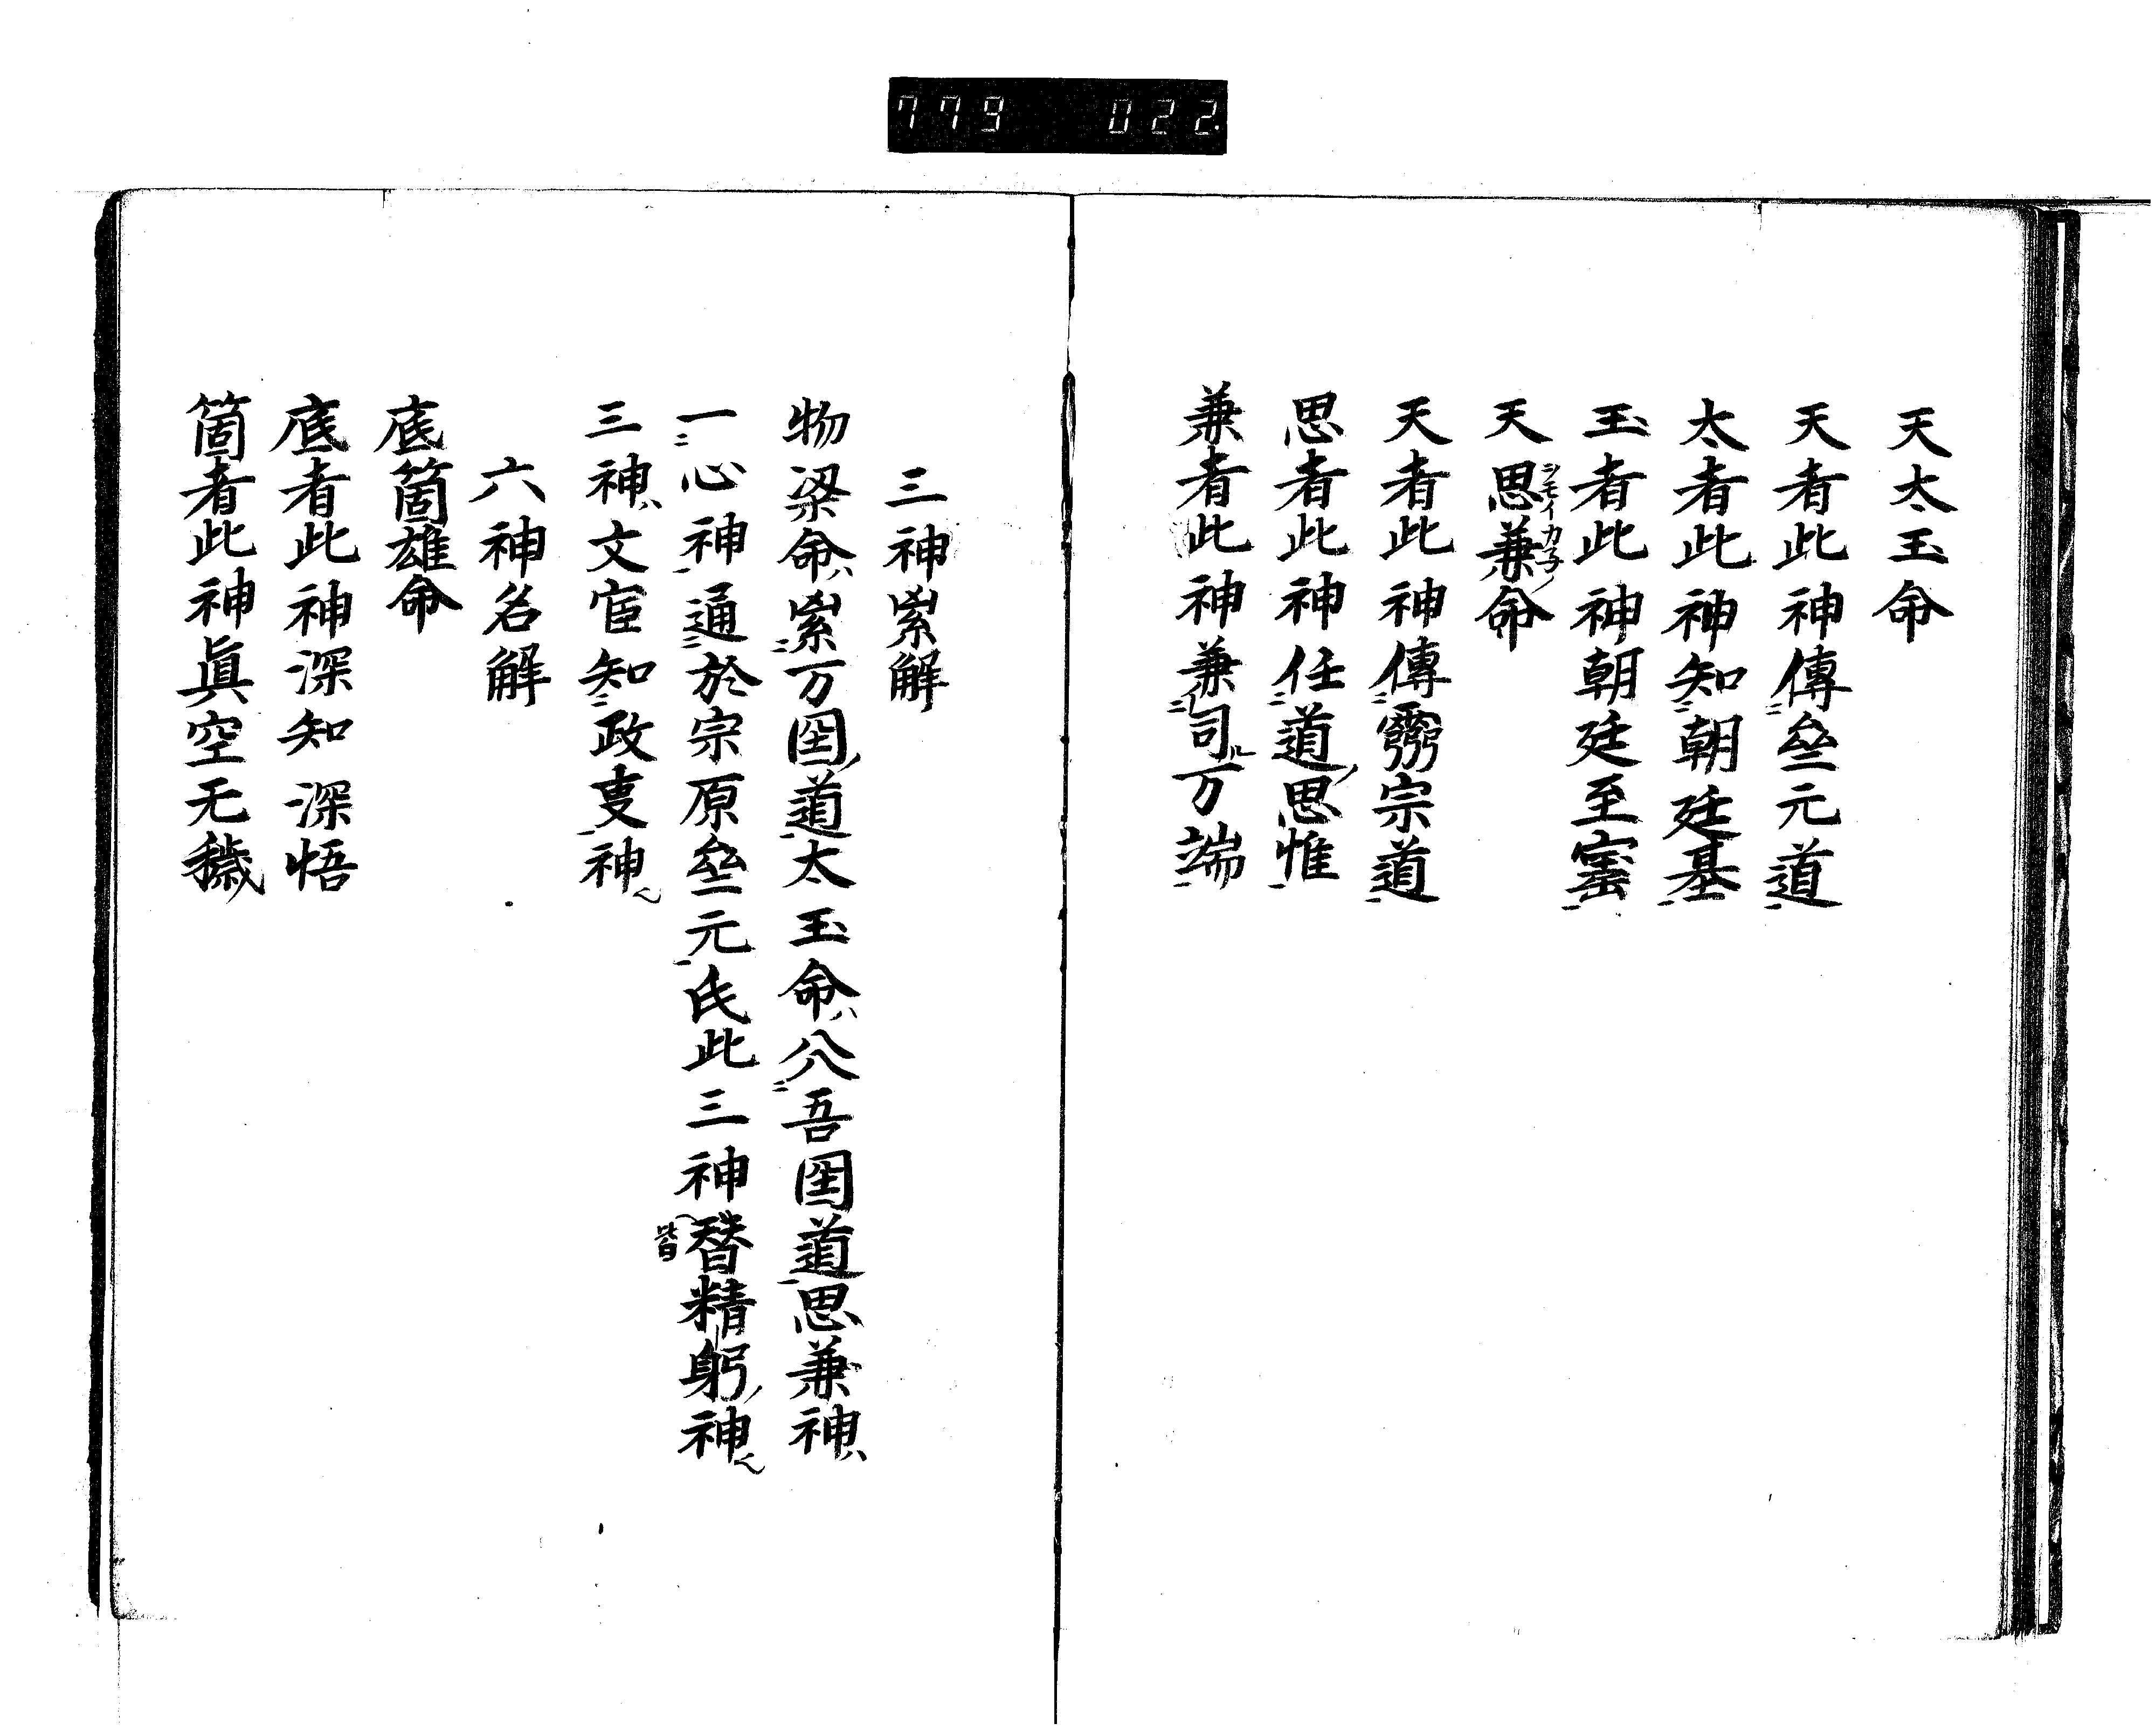 779 022
天太玉命
天者此神傳叄元道
太者此神知朝廷基
玉者此神朝廷至寚
天思兼命
シモイカネノ
天者此神傳宗道
思者此神任道思惟
兼者此神兼司万端
三神宗解
物梁命ハ宗万囯ノ道太玉命ハ八吾囯道思兼神ハ
一心神通於宗原叄元氐此三神替精躬ノ神
皆
三神ハ文官知政叓神
六神名解
底箇雄命
底者此神深知深悟
箇者此神眞空无穢